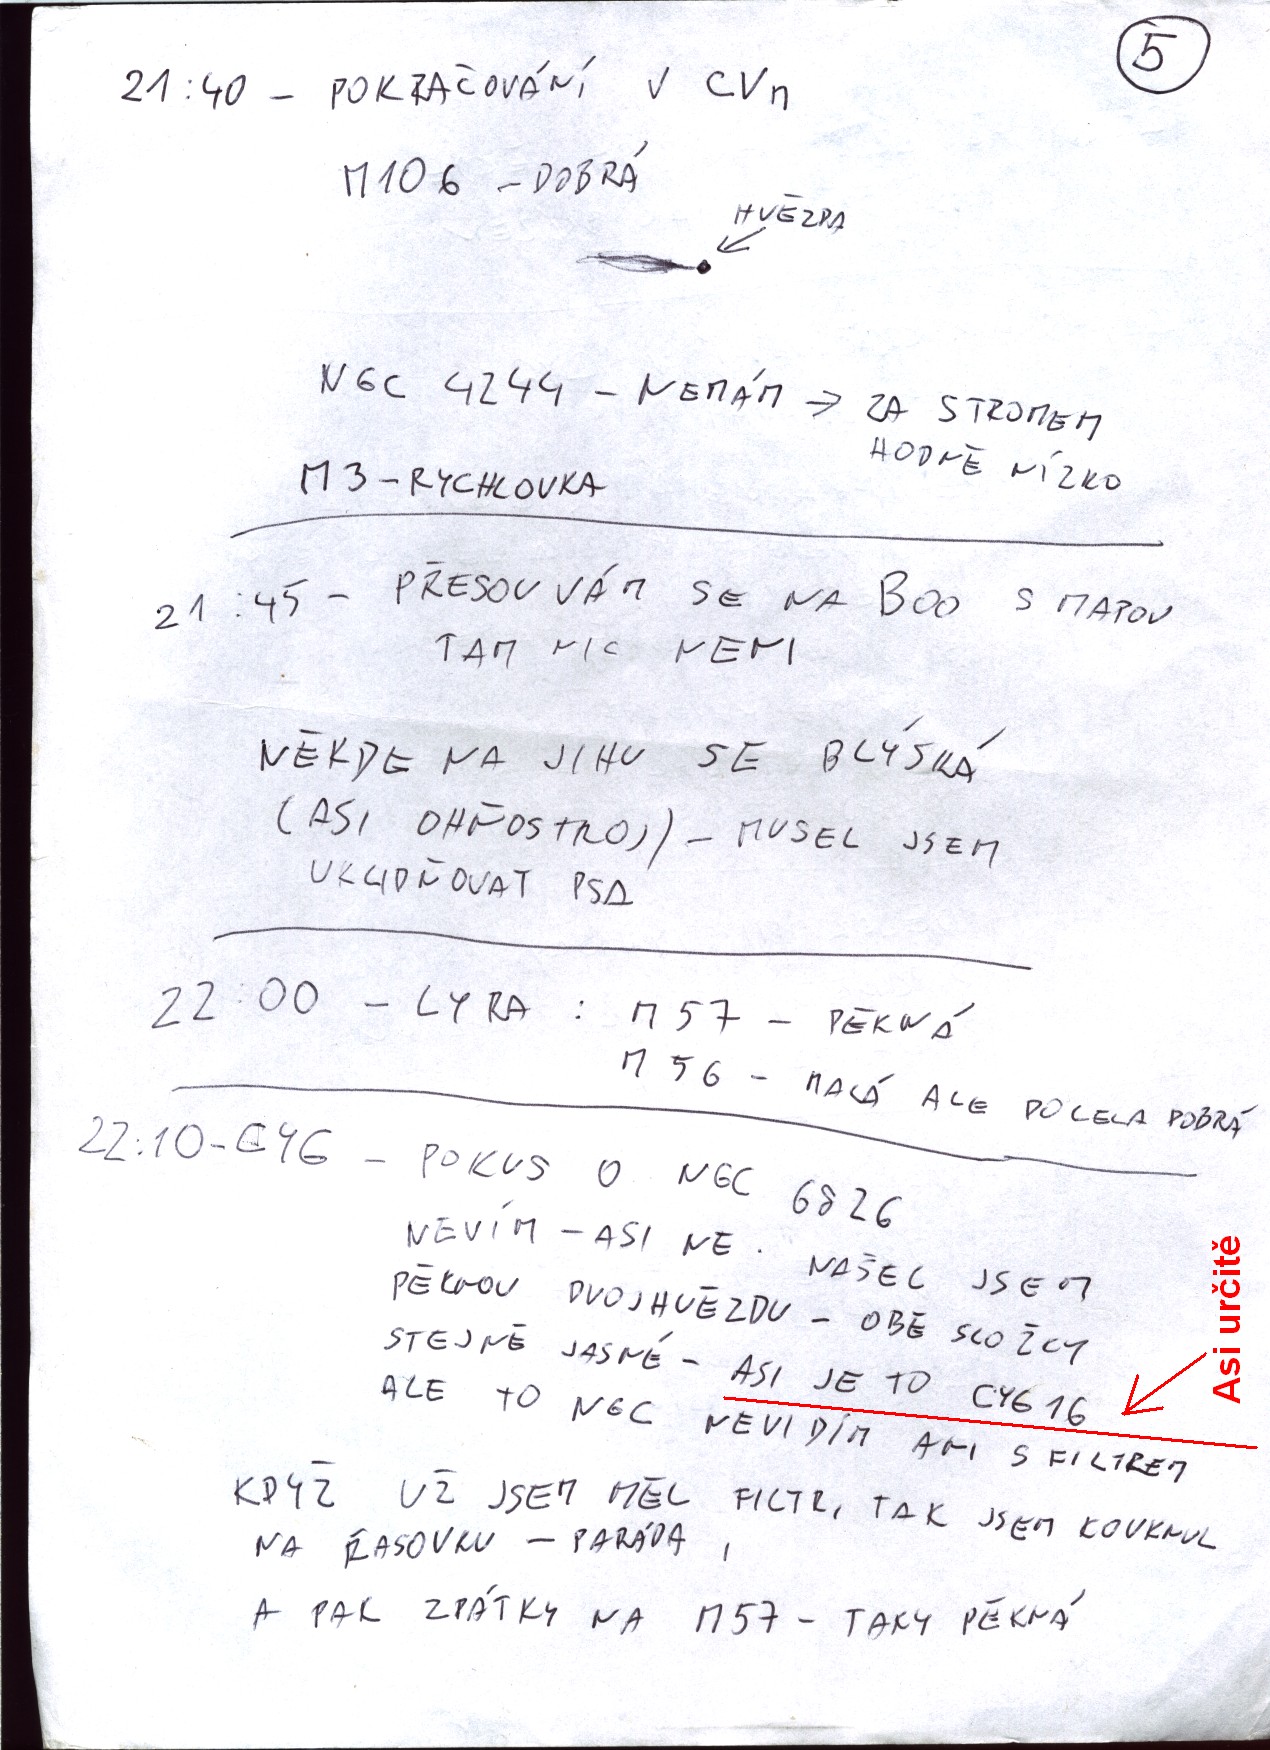 5
21:40 - POKRAČOVÁNÍ V CVn
M106 - DOBRÁ
HVĚZDA
NGC 4244 - NEMÁM → ZA STROMEM
HODNĚ NÍZKO
M3 - RYCHLOVKA
21:45 - PŘESOUVÁM SE NA BOO S MAPOU
TAM NIC NENI
NĚKDE NA JIHU SE BLÝSKÁ
(ASI OHŇOSTROJ) - MUSEL JSEM
UKLIDŇOVAT PSA
22:00 - LYRA : M57 - PĚKNÁ
M56 - MALÁ ALE DOCELA DOBRÁ
22:10 - CYG - POKUS O NGC 6826
NEVÍM - ASI NE. NAŠEL JSEM
PĚKNOU DVOJHVĚZDU - OBĚ SLOŽKY
STEJNĚ JASNÉ - ASI JE TO CYG 16
Asi určitě
ALE TO NGC NEVIDÍM ANI S FILTREM
KDYŽ UŽ JSEM MĚL FILTR, TAK JSEM KOUKNUL
NA ŘASOVKU - PARÁDA,
A PAK ZPÁTKY NA M57 - TAKY PĚKNÁ